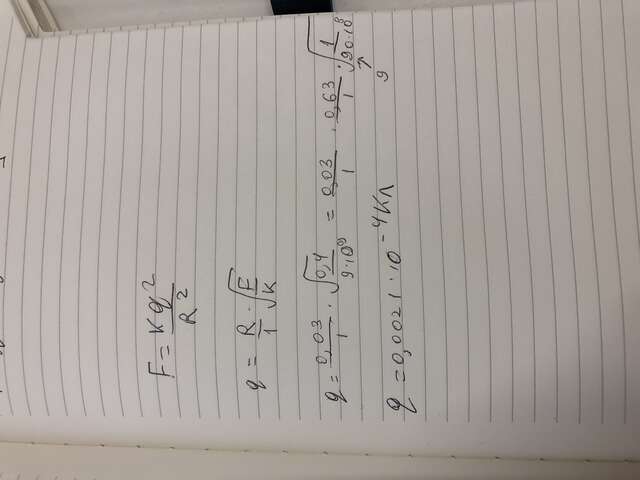 F = kq²/R²
q = R/1 · √F/k
q = 0,03/1 · √0,4/9·10⁹ = 0,03/1 · 0,63/1 · √1/90·10⁸
9
q = 0,0021 · 10⁻⁴ Кл